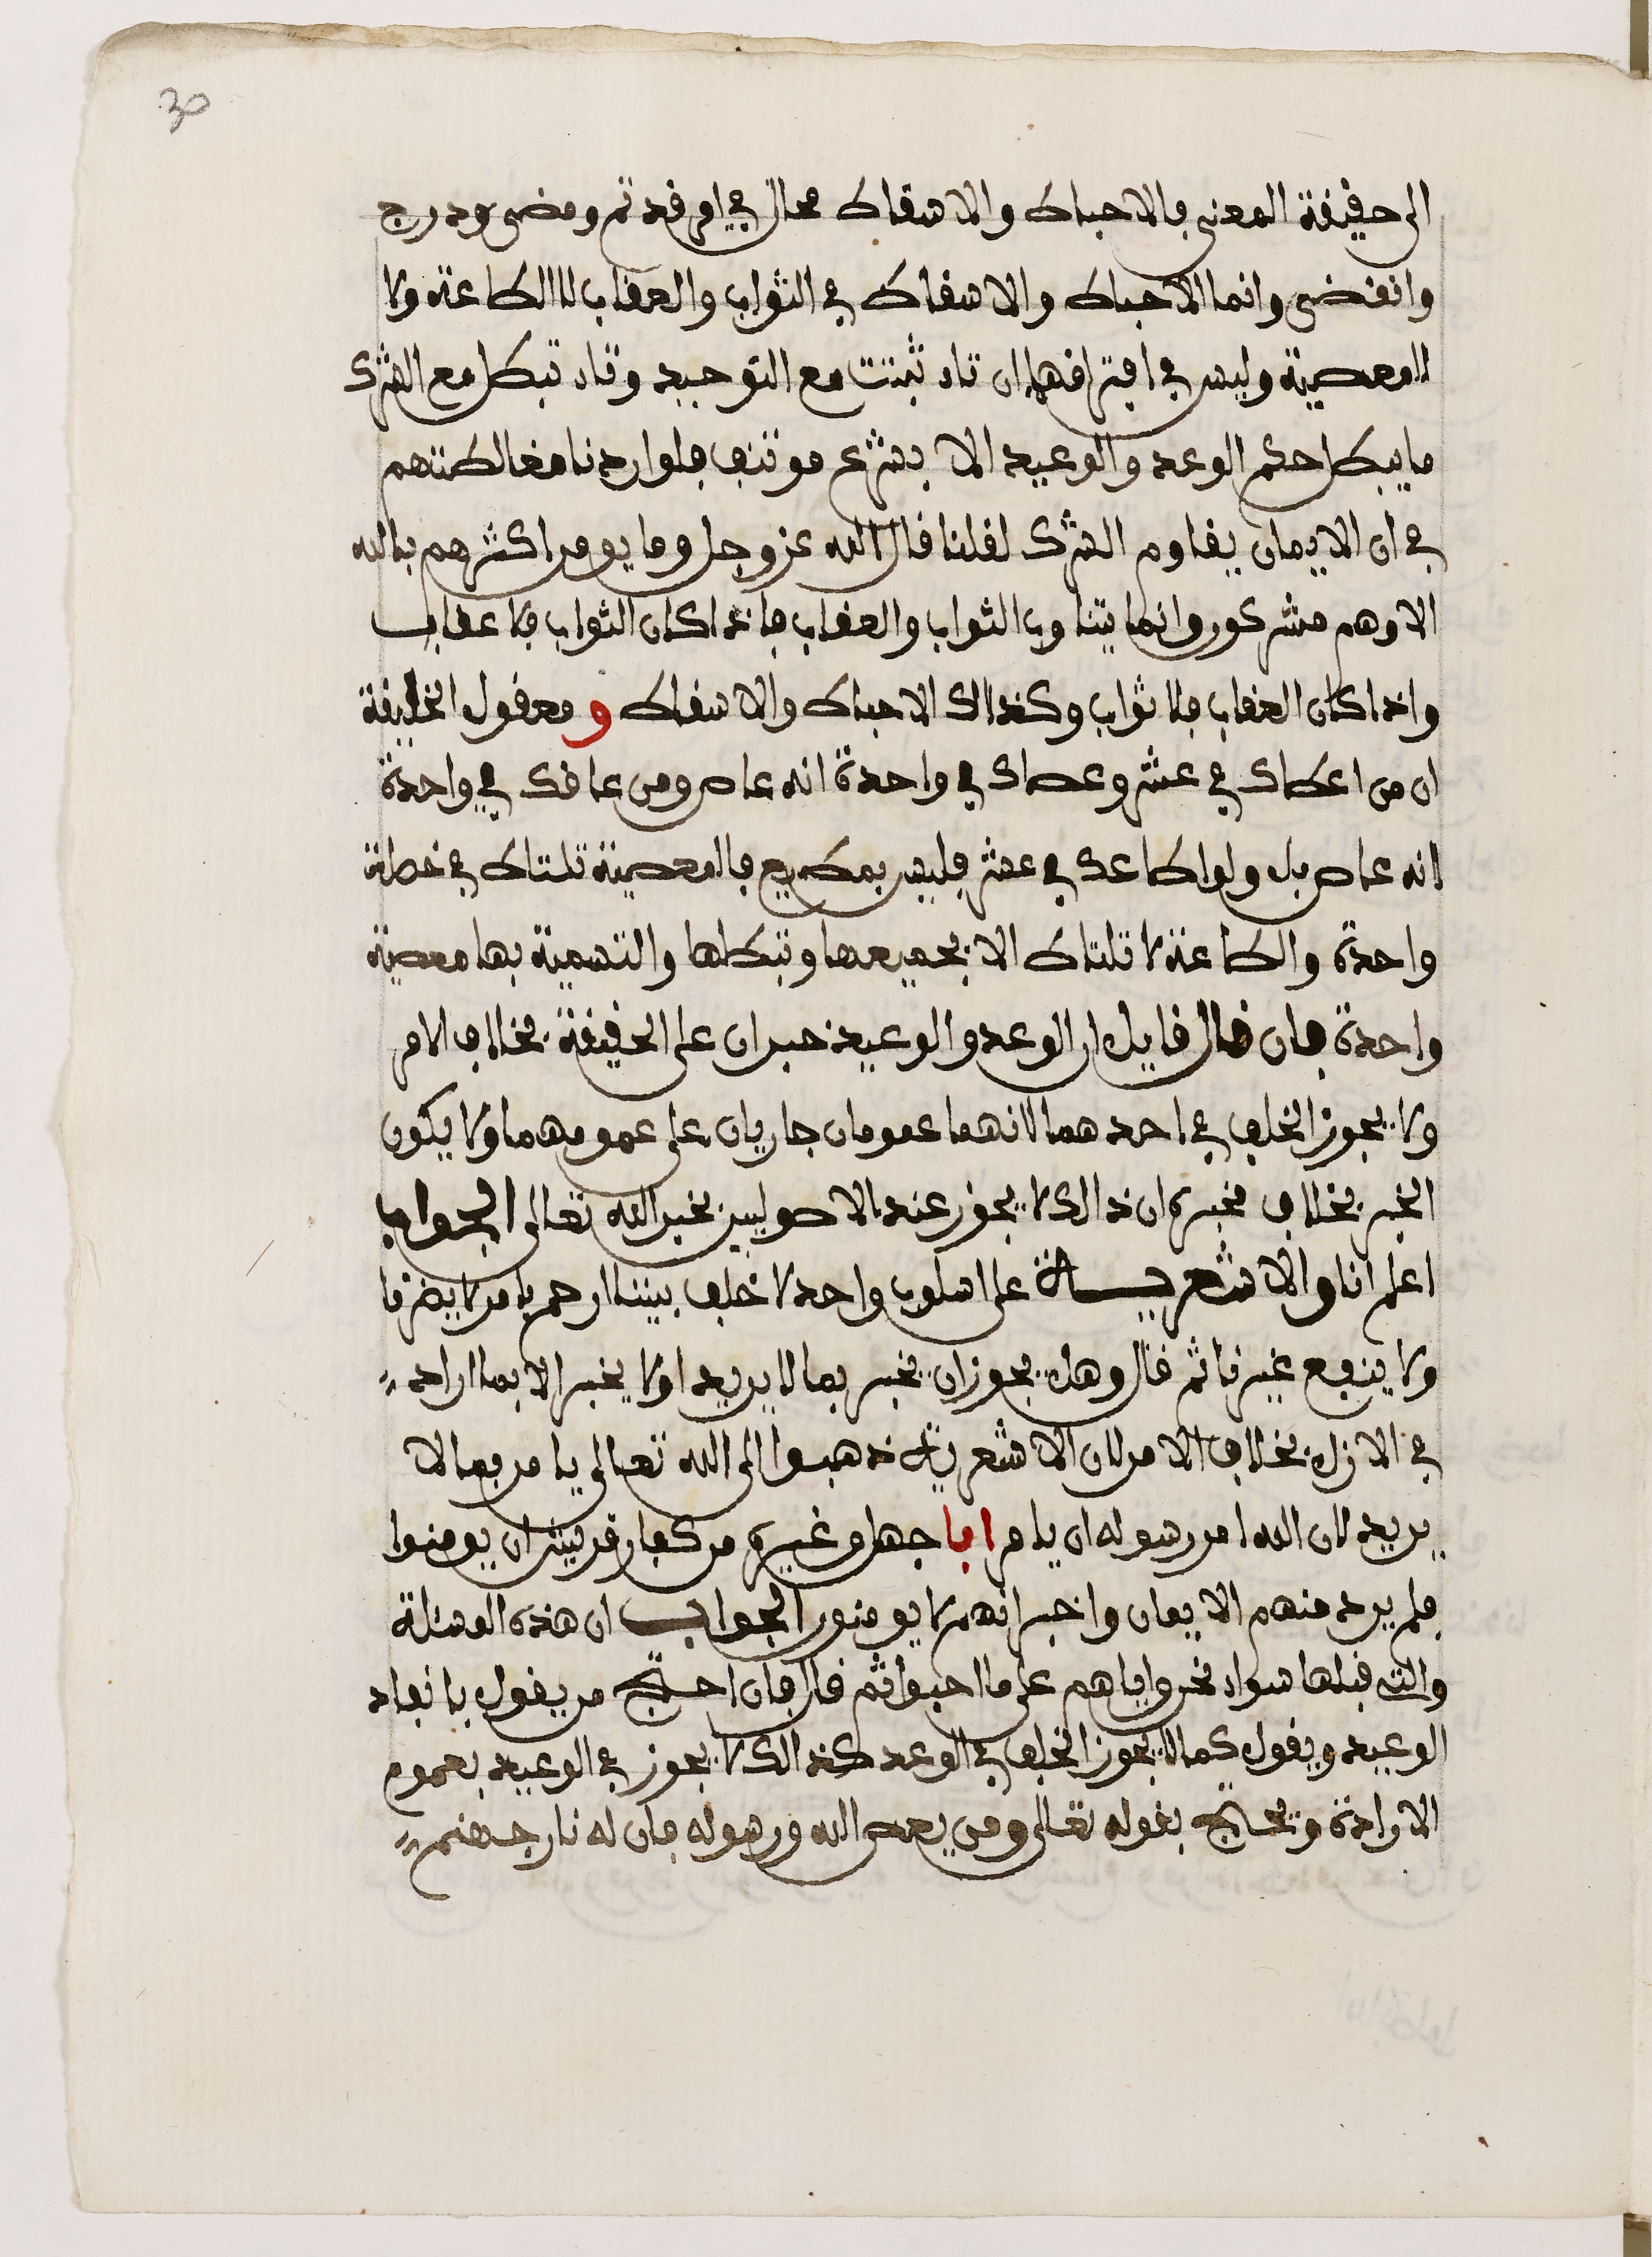 30
الى حقيقة المعنى فالاحباط والاسقاط محال في امر قد تم ومضى ودرج
وانقضى وانما الاحباط والاسقاط في الثواب والعقاب لا الطاعة ولا
المعصية وليس في افتراقهما ان تارة ثبتت مع التوحيد وتارة تبطل مع الشرك
ما يبطل حكم الوعد والوعيد الا بشرع موتنف فلو اردنا مغالطتهم
في ان الايمان يقاوم الشرك لقلنا قال الله عز وجل وما يومن اكثرهم بالله
الا وهم مشركون وانما يتناوب الثواب والعقاب فاذا كان الثواب فلا عقاب
واذا كان العقاب فلا ثواب وكذالك الاحباط والاسقاط و معقول الخليقة
ان من اعطاك في عشر وعصاك في واحدة انه عاص ومن عاقك في واحدة
انه عاص بل ولو اطاعك في عشر فليس بمطيع فالمعصية تلتاط في خصلة
واحدة والطاعة لا تلتاط الا بجميعها وتبطلها والتسمية بها معصية
واحدة فان قال قايل ان الوعد والوعيد خبران على الحقيقة بخلاف الامر
ولا يجوز الخلف في احدهما لانهما عمومان جاريان على عمومهما ولا يكون
الخبر بخلاف مخبره ان ذالك لا يجوز عند الاصوليين بخبر الله تعالى الجواب
اعلم انا والاشعرية على اسلوب واحد لا خلف بيننا ارحم يا من لا يضرنا
ولا ينفع غيرنا ثم قال وهل يجوز ان يخبر بما لا يريد او لا يخبر الا بما اراد
في الازل بخلاف الامر لان الاشعرية ذهبوا الى الله تعالى يامر بما لا
يريد لان الله امر رسوله ان يامر ابا جهل وغيره من كفار قريش ان يومنوا
فلم يرد منهم الايمان واخبر انهم لا يومنون الجواب ان هذه المسئلة
والتي قبلها سواء نحن واياهم على ما احبوا ثم قال فان احتج من يقول بانفاد
الوعيد ويقول كما لا يجوز الخلف في الوعد كذالك لا يجوز في الوعيد بعموم
الارادة ويحتج بقوله تعالى ومن يعص الله ورسوله فان له نار جهنم